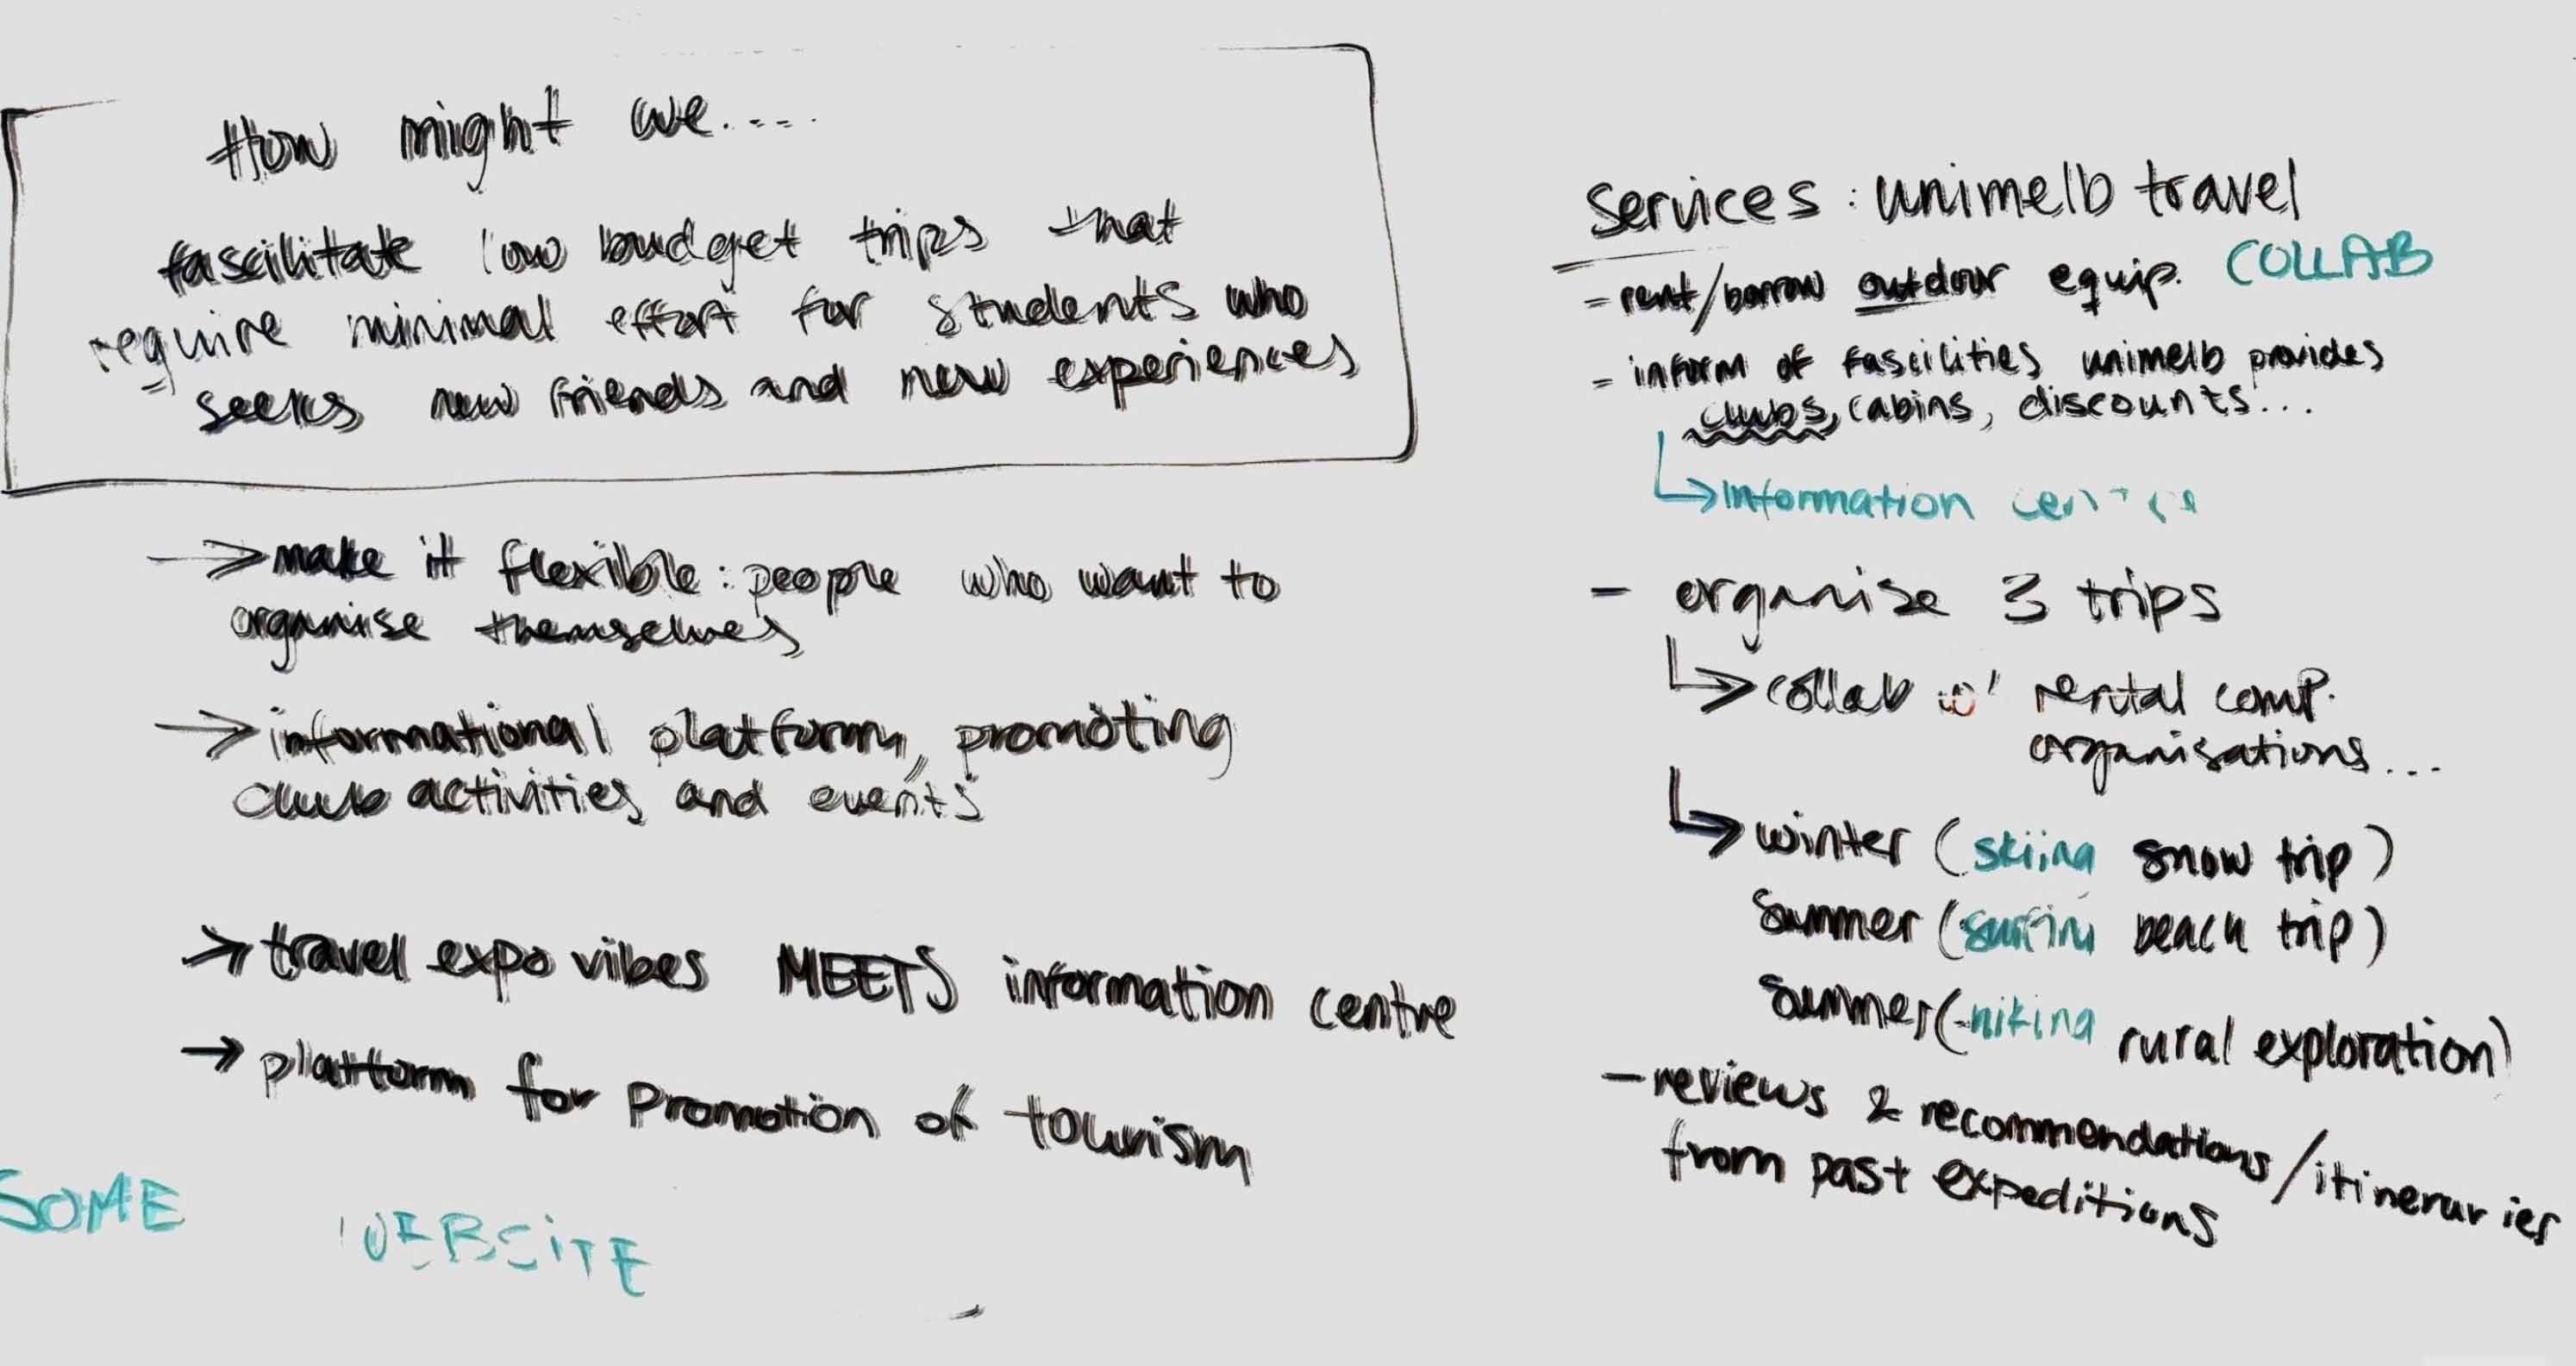 How might we....
fascilitate low budget trips that
require minimal effort for students who
seeks new friends and new experiences
→ make it flexible: people who want to
organise themselves
→ informational platform, promoting
club activities and events
→ travel expo vibes MEETS information centre
→ platform for promotion of tourism
SOME WEBSITE
services: unimelb travel
- rent/borrow outdoor equip. COLLAB
- inform of fascilities unimelb provides
clubs, cabins, discounts...
↳ information centre
- organise 3 trips
↳ collab w' rental comp.
organisations...
↳ winter (skiing snow trip)
summer (surfing beach trip)
summer (hiking rural exploration)
- reviews & recommendations/itineraries
from past expeditions